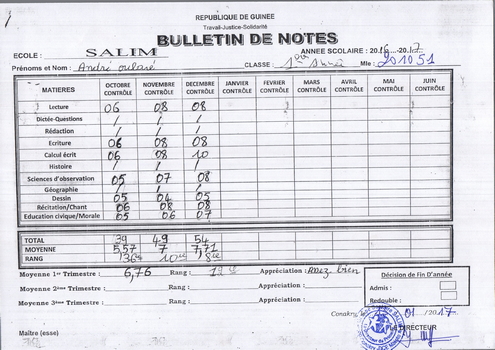 REPUBLIQUE DE GUINEE
Travail-Justice-Solidarité
BULLETIN DE NOTES
ECOLE : SALIM ANNEE SCOLAIRE : 2016-2017
Prénoms et Nom : André oularé CLASSE : 1ère Année Mle : 201051
MATIERES OCTOBRE CONTRÔLE NOVEMBRE CONTRÔLE DECEMBRE CONTRÔLE JANVIER CONTRÔLE FEVRIER CONTRÔLE MARS CONTRÔLE AVRIL CONTRÔLE MAI CONTRÔLE JUIN CONTRÔLE
Lecture 06 08 08
Dictée-Questions / / /
Rédaction / / /
Ecriture 06 08 08
Calcul écrit 06 08 10
Histoire / / /
Sciences d'observation 05 07 08
Géographie / / /
Dessin 05 04 05
Récitation/Chant 06 08 08
Education civique/Morale 05 06 07
TOTAL 39 49 54
MOYENNE 5,57 7 7,71
RANG
Moyenne 1er Trimestre : 6,76 Rang : Appréciation : Assez bien
Moyenne 2ème Trimestre : Rang : Appréciation :
Moyenne 3ème Trimestre : Rang : Appréciation :
Décision de Fin D'année
Admis :
Redouble :
Conakry, 01 /2017
Maître (esse) LE DIRECTEUR